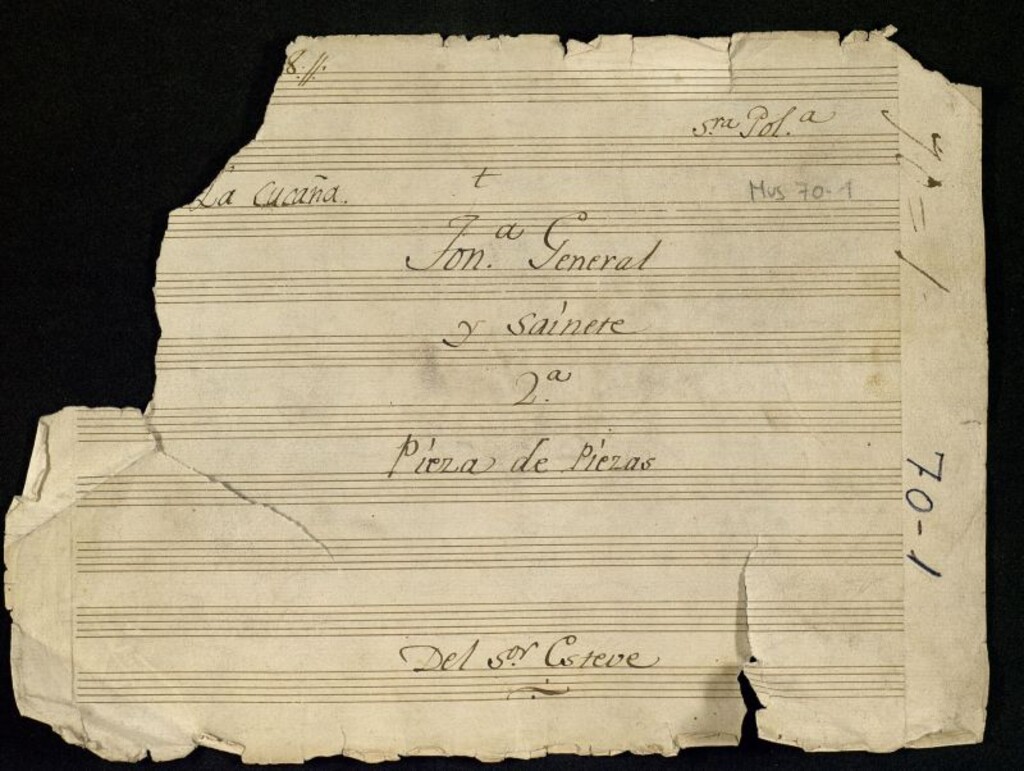 8.//.
Sra Pol.a
La Cucaña.
t
Mus 70-1
Ton.a General
y Sainete
2.a
Pieza de Piezas
Del Sor Esteve
70-1